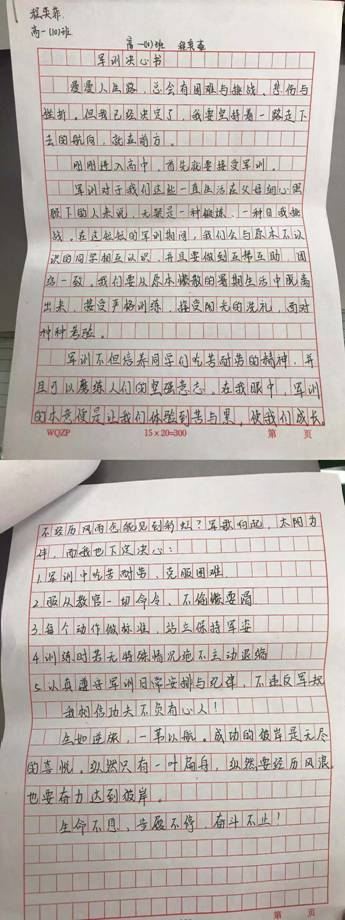 高一(10)班
高一(10)班
军训决心书
漫漫人生路，总会有困难与挑战、悲伤与
挫折。但我已经决定了，我要坚持着一路走下
去的航向，就在前方。
刚刚进入高中，首先就要接受军训。
军训对于我们这些一直生活在父母细心照
顾下的人来说，无疑是一种锻炼，一种自我挑
战。在这短短的军训期间，我们会与原本不认
识的同学相互认识，并且要做到互帮互助，团
结一致。我们要从原本懒散的暑期生活中脱离
出来，接受严格训练，接受阳光的洗礼，面对
种种考验。
军训不但培养同学们吃苦耐劳的精神，并
且可以磨练人们的坚强意志。在我眼中，军训
的本意便是让我们体验到苦与累，使我们成长。
WQZP 15×20=300 第 页
不经历风雨怎能见到彩虹？军歌作起，太阳为
伴，而我也下定决心：
1.军训中吃苦耐劳、克服困难
2.服从教官一切命令、不偷懒耍滑
3.每个动作做标准，站立保持军姿
4.训练时若无特殊情况绝不主动退缩
5.认真遵守军训日常安排与纪律，不违反军规
我相信功夫不负有心人！
生如逆旅，一苇以航。成功的彼岸是无尽
的喜悦。纵然只有一叶扁舟，纵然要经历风浪，
也要奋力达到彼岸。
生命不息，步履不停，奋斗不止！
第 页